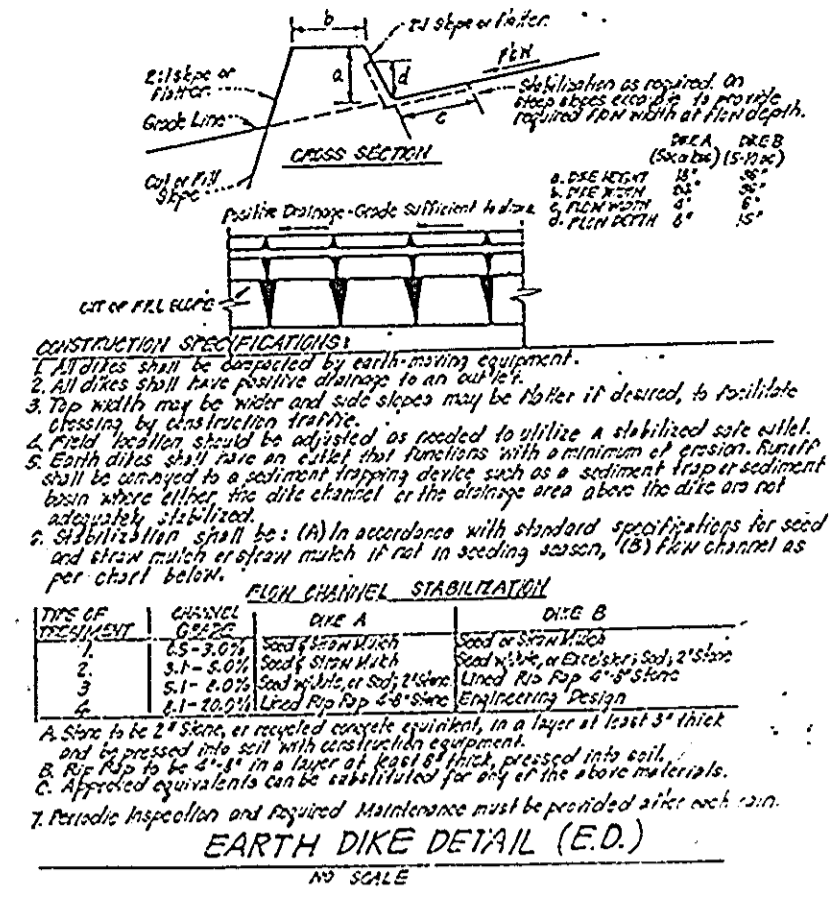 b
2:1 Slope or Flatter
2:1 Slope or
Flatter
a
d
FLOW
Stabilization as required. On
steep slopes excavate to provide
required flow width at flow depth.
c
Grade Line
CROSS SECTION
Cut or Fill
Slope
DIKE A DIKE B
(5 ac or less) (5-10 ac)
a. DIKE HEIGHT 18" 36"
b. DIKE WIDTH 36"
c. FLOW WIDTH 4' 6'
d. FLOW DEPTH 8" 15"
Positive Drainage-Grade Sufficient to drain
CUT OR FILL SLOPE
CONSTRUCTION SPECIFICATIONS:
1. All dikes shall be compacted by earth-moving equipment.
2. All dikes shall have positive drainage to an outlet.
3. Top width may be wider and side slopes may be flatter if desired, to facilitate
crossing by construction traffic.
4. Field location should be adjusted as needed to utilize a stabilized safe outlet.
5. Earth dikes shall have an outlet that functions with a minimum of erosion. Runoff
shall be conveyed to a sediment trapping device such as a sediment trap or sediment
basin where either the dike channel or the drainage area above the dike are not
adequately stabilized.
6. Stabilization shall be: (A) In accordance with standard specifications for seed
and straw mulch or straw mulch if not in seeding season, (B) Flow channel as
per chart below.
FLOW CHANNEL STABILIZATION
TYPE OF TREATMENT CHANNEL GRADE DIKE A DIKE B
1. .5-3.0% Seed & Straw Mulch Seed or Straw Mulch
2. 3.1-5.0% Seed & Straw Mulch Seed w/Jute, or Excelsior; Sod; 2" Stone
3 5.1-8.0% Seed w/Jute, or Sod; 2" Stone Lined Rip Rap 4"-8" Stone
4. 8.1-20.0% Lined Rip Rap 4"-8" Stone Engineering Design
A. Stone to be 2" Stone, or recycled concrete equivalent, in a layer at least 3" thick
and be pressed into soil with construction equipment.
B. Rip Rap to be 4"-8" in a layer at least 8" thick, pressed into soil.
C. Approved equivalents can be substituted for any of the above materials.
7. Periodic Inspection and Required Maintenance must be provided after each rain.
EARTH DIKE DETAIL (E.D.)
NO SCALE